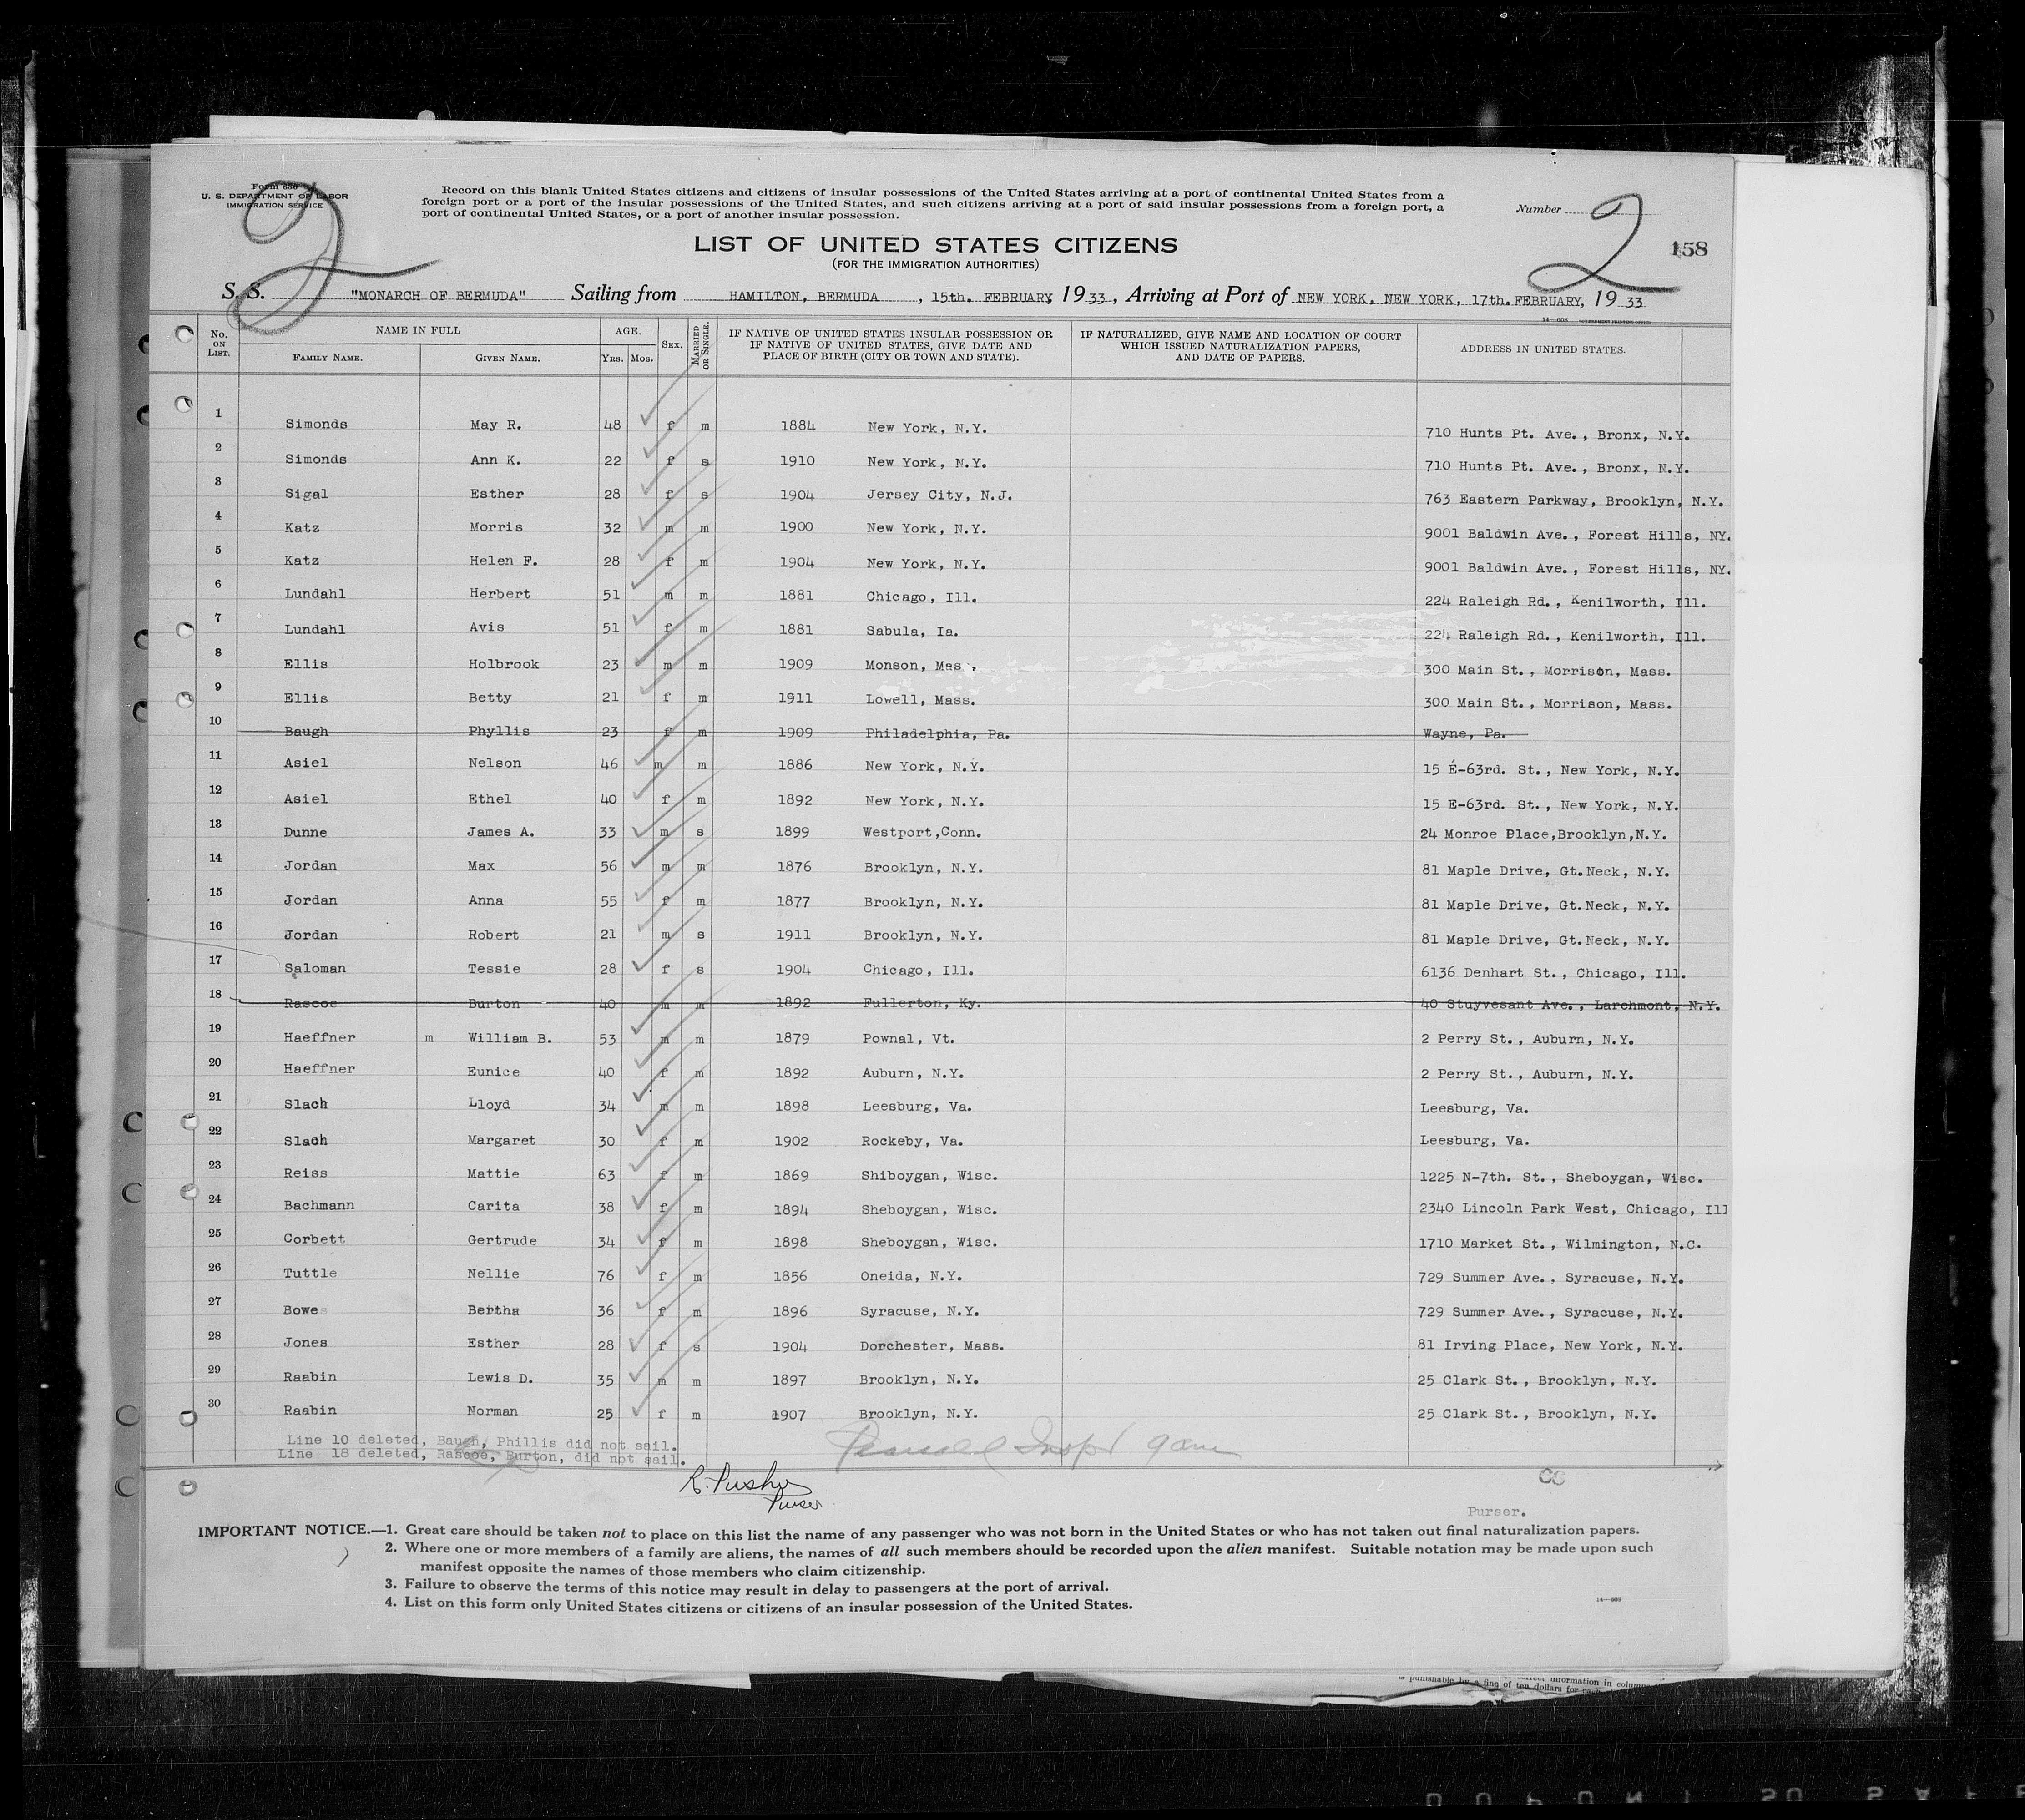 Form 630
U. S. DEPARTMENT OF LABOR
IMMIGRATION SERVICE
2
Record on this blank United States citizens and citizens of insular possessions of the United States arriving at a port of continental United States from a
foreign port or a port of the insular possessions of the United States, and such citizens arriving at a port of said insular possessions from a foreign port, a
port of continental United States, or a port of another insular possession.
Number 2
158
LIST OF UNITED STATES CITIZENS
(FOR THE IMMIGRATION AUTHORITIES)
S. S. "MONARCH OF BERMUDA" Sailing from HAMILTON, BERMUDA , 15th. FEBRUARY 1933, Arriving at Port of NEW YORK, NEW YORK, 17th. FEBRUARY, 1933
14—608 GOVERNMENT PRINTING OFFICE
No. ON LIST. NAME IN FULL FAMILY NAME. GIVEN NAME. AGE. YRS. MOS. SEX. MARRIED OR SINGLE. IF NATIVE OF UNITED STATES INSULAR POSSESSION OR IF NATIVE OF UNITED STATES, GIVE DATE AND PLACE OF BIRTH (CITY OR TOWN AND STATE). IF NATURALIZED, GIVE NAME AND LOCATION OF COURT WHICH ISSUED NATURALIZATION PAPERS, AND DATE OF PAPERS. ADDRESS IN UNITED STATES.
1 Simonds May R. 48 f m 1884 New York, N.Y. 710 Hunts Pt. Ave., Bronx, N.Y.
2 Simonds Ann K. 22 f s 1910 New York, N.Y. 710 Hunts Pt. Ave., Bronx, N.Y.
3 Sigal Esther 28 f s 1904 Jersey City, N.J. 763 Eastern Parkway, Brooklyn, N.Y.
4 Katz Morris 32 m m 1900 New York, N.Y. 9001 Baldwin Ave., Forest Hills, NY.
5 Katz Helen F. 28 f m 1904 New York, N.Y. 9001 Baldwin Ave., Forest Hills, NY.
6 Lundahl Herbert 51 m m 1881 Chicago, Ill. 224 Raleigh Rd., Kenilworth, Ill.
7 Lundahl Avis 51 f m 1881 Sabula, Ia. 224 Raleigh Rd., Kenilworth, Ill.
8 Ellis Holbrook 23 m m 1909 Monson, Mas., 300 Main St., Morrison, Mass.
9 Ellis Betty 21 f m 1911 Lowell, Mass. 300 Main St., Morrison, Mass.
10 Baugh Phyllis 23 f m 1909 Philadelphia, Pa. Wayne, Pa.
11 Asiel Nelson 46 m m 1886 New York, N.Y. 15 E-63rd. St., New York, N.Y.
12 Asiel Ethel 40 f m 1892 New York, N.Y. 15 E-63rd. St., New York, N.Y.
13 Dunne James A. 33 m s 1899 Westport,Conn. 24 Monroe Place,Brooklyn,N.Y.
14 Jordan Max 56 m m 1876 Brooklyn, N.Y. 81 Maple Drive, Gt.Neck, N.Y.
15 Jordan Anna 55 f m 1877 Brooklyn, N.Y. 81 Maple Drive, Gt.Neck, N.Y.
16 Jordan Robert 21 m s 1911 Brooklyn, N.Y. 81 Maple Drive, Gt.Neck, N.Y.
17 Saloman Tessie 28 f s 1904 Chicago, Ill. 6136 Denhart St., Chicago, Ill.
18 Rascoe Burton 40 m m 1892 Fullerton, Ky. 40 Stuyvesant Ave., Larchmont, N.Y.
19 Haeffner m William B. 53 m m 1879 Pownal, Vt. 2 Perry St., Auburn, N.Y.
20 Haeffner Eunice 40 f m 1892 Auburn, N.Y. 2 Perry St., Auburn, N.Y.
21 Slach Lloyd 34 m m 1898 Leesburg, Va. Leesburg, Va.
22 Slach Margaret 30 f m 1902 Rockeby, Va. Leesburg, Va.
23 Reiss Mattie 63 f m 1869 Shiboygan, Wisc. 1225 N-7th. St., Sheboygan, Wisc.
24 Bachmann Carita 38 f m 1894 Sheboygan, Wisc. 2340 Lincoln Park West, Chicago, Ill
25 Corbett Gertrude 34 f m 1898 Sheboygan, Wisc. 1710 Market St., Wilmington, N.C.
26 Tuttle Nellie 76 f m 1856 Oneida, N.Y. 729 Summer Ave., Syracuse, N.Y.
27 Bowes Bertha 36 f m 1896 Syracuse, N.Y. 729 Summer Ave., Syracuse, N.Y.
28 Jones Esther 28 f s 1904 Dorchester, Mass. 81 Irving Place, New York, N.Y.
29 Raabin Lewis D. 35 m m 1897 Brooklyn, N.Y. 25 Clark St., Brooklyn, N.Y.
30 Raabin Norman 25 f m 1907 Brooklyn, N.Y. 25 Clark St., Brooklyn, N.Y.
Line 10 deleted, Baugh, Phillis did not sail.
Line 18 deleted, Rascoe, Burton, did not sail.
Insp 9am
Purser
CC
Purser.
IMPORTANT NOTICE.—1. Great care should be taken not to place on this list the name of any passenger who was not born in the United States or who has not taken out final naturalization papers.
2. Where one or more members of a family are aliens, the names of all such members should be recorded upon the alien manifest. Suitable notation may be made upon such
manifest opposite the names of those members who claim citizenship.
3. Failure to observe the terms of this notice may result in delay to passengers at the port of arrival.
4. List on this form only United States citizens or citizens of an insular possession of the United States.
14—608